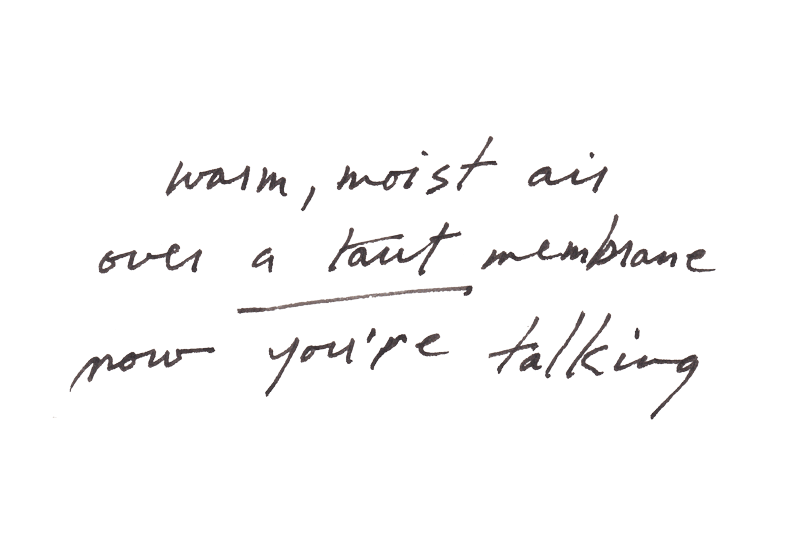 warm, moist air
over a taut membrane
now you're talking